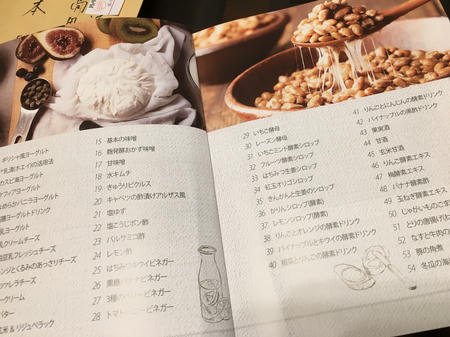 本
ギリシャ風ヨーグルト
乳清(ホエイ)の活用法
カスピ海ヨーグルト
ケフィアヨーグルト
なめらかバニラヨーグルト
ヨーグルト
ヨーグルトドリンク
クリームチーズ
豆乳フレッシュチーズ
オレンジとくるみのあっさりチーズ
モッツァレラチーズ
サワークリーム
バター
玄米 & リジュベラック
15 基本の味噌
16 麹発酵おかず味噌
17 甘味噌
18 水キムチ
19 きゅうりピクルス
20 キャベツの酢漬けアルザス風
21 塩ゆず
22 塩こうじポン酢
23 バルサミコ酢
24 レモン酢
25 はちみつキウイビネガー
26 黒糖バナナビネガー
27 3種のベリービネガー
28 トマトハーブビネガー
29 いちご酵母
30 レーズン酵母
31 いちごミント酵素シロップ
32 フルーツ酵素シロップ
33 はちみつ生姜シロップ
34 紅玉オリゴシロップ
35 きんかんと生姜のシロップ
36 かりんシロップ(酵素)
37 レモンシロップ(酵素)
38 りんごとオレンジの酵素ドリンク
39 パイナップルとキウイの酵素ドリンク
40 根菜とりんごの酵素ドリンク
41 りんごとにんじんの酵素ドリンク
42 パイナップルの黒酢ドリンク
43 果実酒
44 甘酒
45 玄米甘酒
46 りんご酵素エキス
47 梅酵素エキス
48 バナナ酵素酢
49 玉ねぎ酵素エキス
50 じゃがいものご
51 とりの唐揚げ
52 なすと牛肉の
53 豚の角煮
54 冬瓜の海